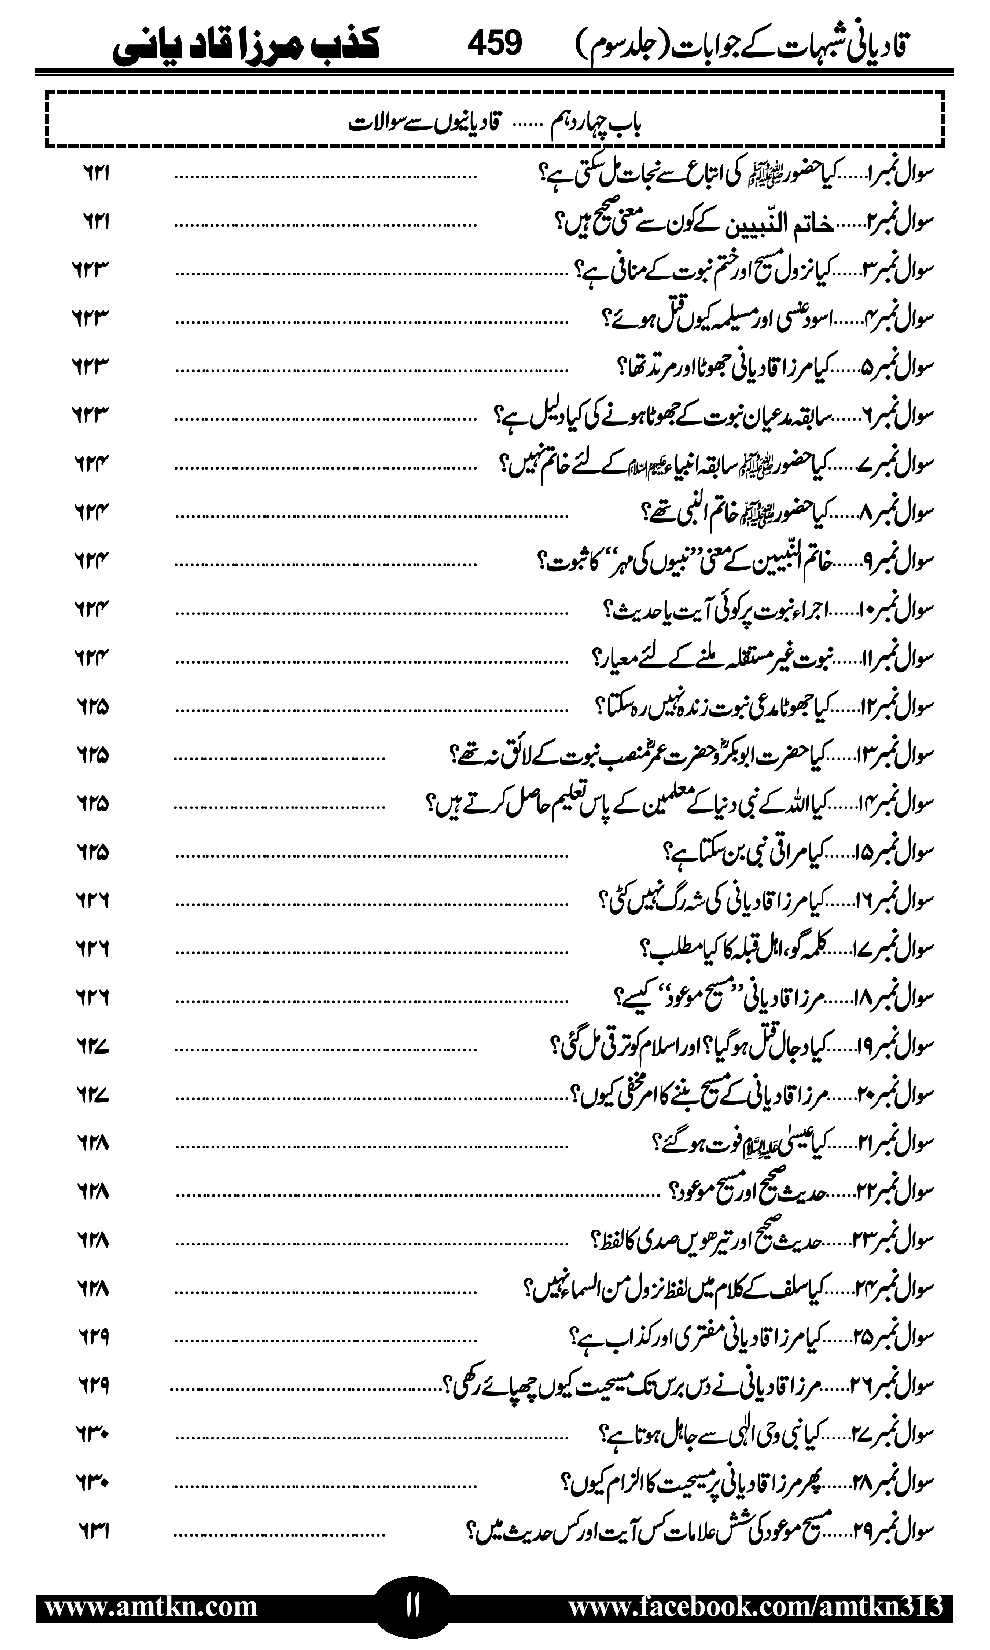 قادیانی شبہات کے جوابات (جلد سوم) 459 کذب مرزا قادیانی
باب چہاردہم ...... قادیانیوں سے سوالات
سوال نمبر۱......کیا حضور ﷺ کی اتباع سے نجات مل سکتی ہے؟ ۶۲۱
سوال نمبر۲......خاتم النّبیین کے کون سے معنی صحیح ہیں؟ ۶۲۱
سوال نمبر۳......کیا نزول مسیح اور ختم نبوت کے منافی ہے؟ ۶۲۳
سوال نمبر۴......اسود عنسی اور مسیلمہ کیوں قتل ہوئے؟ ۶۲۳
سوال نمبر۵......کیا مرزا قادیانی جھوٹا اور مرتد تھا؟ ۶۲۳
سوال نمبر۶......سابقہ مدعیان نبوت کے جھوٹا ہونے کی کیا دلیل ہے؟ ۶۲۳
سوال نمبر۷......کیا حضور ﷺ سابقہ انبیاء علیہم السلام کے لئے خاتم نہیں؟ ۶۲۴
سوال نمبر۸......کیا حضور ﷺ خاتم النبی تھے؟ ۶۲۴
سوال نمبر۹......خاتم النّبیین کے معنی ”نبیوں کی مہر“ کا ثبوت؟ ۶۲۴
سوال نمبر۱۰......اجراء نبوت پر کوئی آیت یا حدیث؟ ۶۲۴
سوال نمبر۱۱......نبوت غیر مستقلہ ملنے کے لئے معیار؟ ۶۲۴
سوال نمبر۱۲......کیا جھوٹا مدعی نبوت زندہ نہیں رہ سکتا؟ ۶۲۵
سوال نمبر۱۳......کیا حضرت ابوبکرؓ وحضرت عمرؓ منصب نبوت کے لائق نہ تھے؟ ۶۲۵
سوال نمبر۱۴......کیا اللہ کے نبی دنیا کے معلمین کے پاس تعلیم حاصل کرتے ہیں؟ ۶۲۵
سوال نمبر۱۵......کیا مراقی نبی بن سکتا ہے؟ ۶۲۵
سوال نمبر۱۶......کیا مرزا قادیانی کی شہ رگ نہیں کٹی؟ ۶۲۶
سوال نمبر۱۷......کلمہ گو، اہل قبلہ کا کیا مطلب؟ ۶۲۶
سوال نمبر۱۸......مرزا قادیانی ”مسیح موعود“ کیسے؟ ۶۲۶
سوال نمبر۱۹......کیا دجال قتل ہوگیا؟ اور اسلام کو ترقی مل گئی؟ ۶۲۷
سوال نمبر۲۰......مرزا قادیانی کے مسیح بننے کا امر مخفی کیوں؟ ۶۲۷
سوال نمبر۲۱......کیا عیسیٰ علیہ السلام فوت ہو گئے؟ ۶۲۸
سوال نمبر۲۲......حدیث صحیح اور مسیح موعود؟ ۶۲۸
سوال نمبر۲۳......حدیث صحیح اور تیرھویں صدی کا لفظ؟ ۶۲۸
سوال نمبر۲۴......کیا سلف کے کلام میں لفظ نزول من السماء نہیں؟ ۶۲۸
سوال نمبر۲۵......کیا مرزا قادیانی مفتری اور کذاب ہے؟ ۶۲۹
سوال نمبر۲۶......مرزا قادیانی نے دس برس تک مسیحیت کیوں چھپائے رکھی؟ ۶۲۹
سوال نمبر۲۷......کیا نبی وحی الٰہی سے جاہل ہوتا ہے؟ ۶۳۰
سوال نمبر۲۸......پھر مرزا قادیانی پر مسیحیت کا الزام کیوں؟ ۶۳۰
سوال نمبر۲۹......مسیح موعود کی شش علامات کس آیت اور کس حدیث میں؟ ۶۳۱
www.amtkn.com ۱۱ www.facebook.com/amtkn313